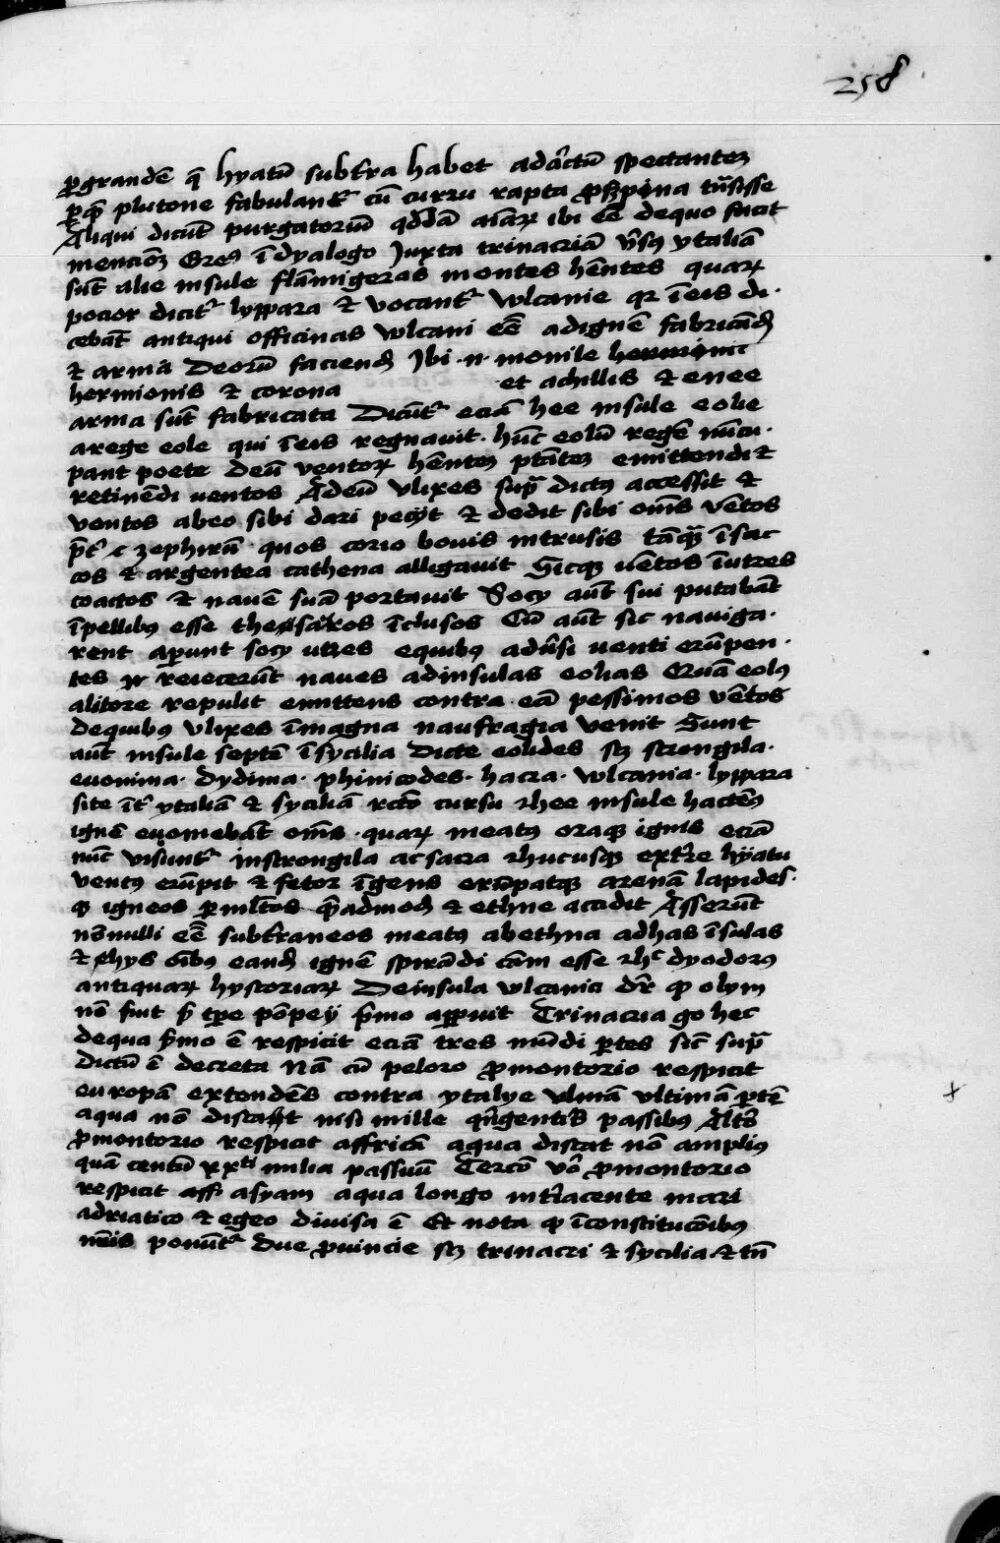 258
ꝑgrandē q̄ hyatū subtꝰra habet adarctū spectantem
ꝑ q̄ plutone fabulantʳ cū curru rapta ꝓserpina trāsisse
Aliqui dicūt purgatoriū qddā aīaꝝ ibi eē de quo facit
mencioꝫ Gregꝰ ī dyalogo Juxta trinacriā vsꝰ ytaliā
sūt alie insule flāmigeras montes hētes quaꝝ
pocior dicitʳ lyppara ⁊ vocantʳ wlcanie qr ī eis di-
cebāt antiqui officinas wlcani eē adignē fabricādꝭ
⁊ arma deorū faciendꝭ Ibi .n. monile
hermionis ⁊ corona et achillis ⁊ enee
arma sūt fabricata Dicūtʳ eciā hee insule eolie
arege eole qui ī eis regnauit. hūc eolū regē nūcu-
pant poete deū ventoꝝ hētem ptātem emittendi ⁊
retinēdi uentos Ad eū vlixes supᵃ dictꝰ accessit ⁊
ventos abeo sibi dari pecijt ⁊ dedit sibi om̄s vētos
p̄tʳ zephirū quos corio bouis intrusis tāqᵃ ī sac
cos ⁊ argentea cathena alligauit Sicqꝫ uētos ī utres
coactos ⁊ nauē suā portauit Socij aūt sui putabāt
ī pellibꝰ esse thesauros īclusos Cū aūt sic nauiga-
rent aꝑuerunt socij utres equibꝰ aduersi uenti erūpen-
tes reiecerūt naues adinsulas eolias Quā eolꝰ
alitore repulit emittens contra eā pessimos vētos
dequibꝰ vlixes ī magna naufragia venit Sunt
aūt insule septē ī sycilia dicte eolides scꝫ strongila.
euonima. dydima. phinicodes. hacra. wlcania. lyppara
site intʳ ytaliā ⁊ syciliā rcō cursu ⁊ hee insule hactenꝰ
ignē euomebāt om̄s. quaꝝ meatꝰ oraqꝫ ignis eciā
nūc visuntʳ instrongila ac sacra ⁊ hucusqꝫ ext̄re hyatu
ventꝰ erūpit ⁊ fetor īgens erūpatqꝫ arenā lapides-
qꝫ igneos ꝑmltos quēadmodꝭ ⁊ ethne accidit Asserūt
nōnulli eē subtꝰraneos meatꝰ abethna adhas īsulas
⁊ hys oībꝰ eandꝭ ignē spirādi cām esse ⁊ hᶜ dyodorꝰ
antiquaꝝ hystoriaꝝ De insula wlcania dʳ qꝫ olym
nō fuit sꝫ tꝑe pōpeij pmo apparuit Trinacria go hec
dequa pmo ē respicit eciā tres mūdi ꝑtes sic supᵃ
dictū ē decreta Nā cū peloro ꝓmontorio respicit
europā extendēs contra ytalye ultimā ꝑtē
aqua nō distat nisi mille qngentis passibꝰ Altero
ꝓmontorio respicit affricā aqua distat nō ampliꝰ
quā centū xxᵗⁱ milia passuū Tercō vo ꝓmontorio
respicit asyam aqua longo intʳiacente mari
adriatico ⁊ egeo diuisa ē Et nota qꝫ ī constitucōibꝰ
ponūtʳ due ꝓuincie scꝫ trinacri ⁊ sycilia ⁊ tn̄